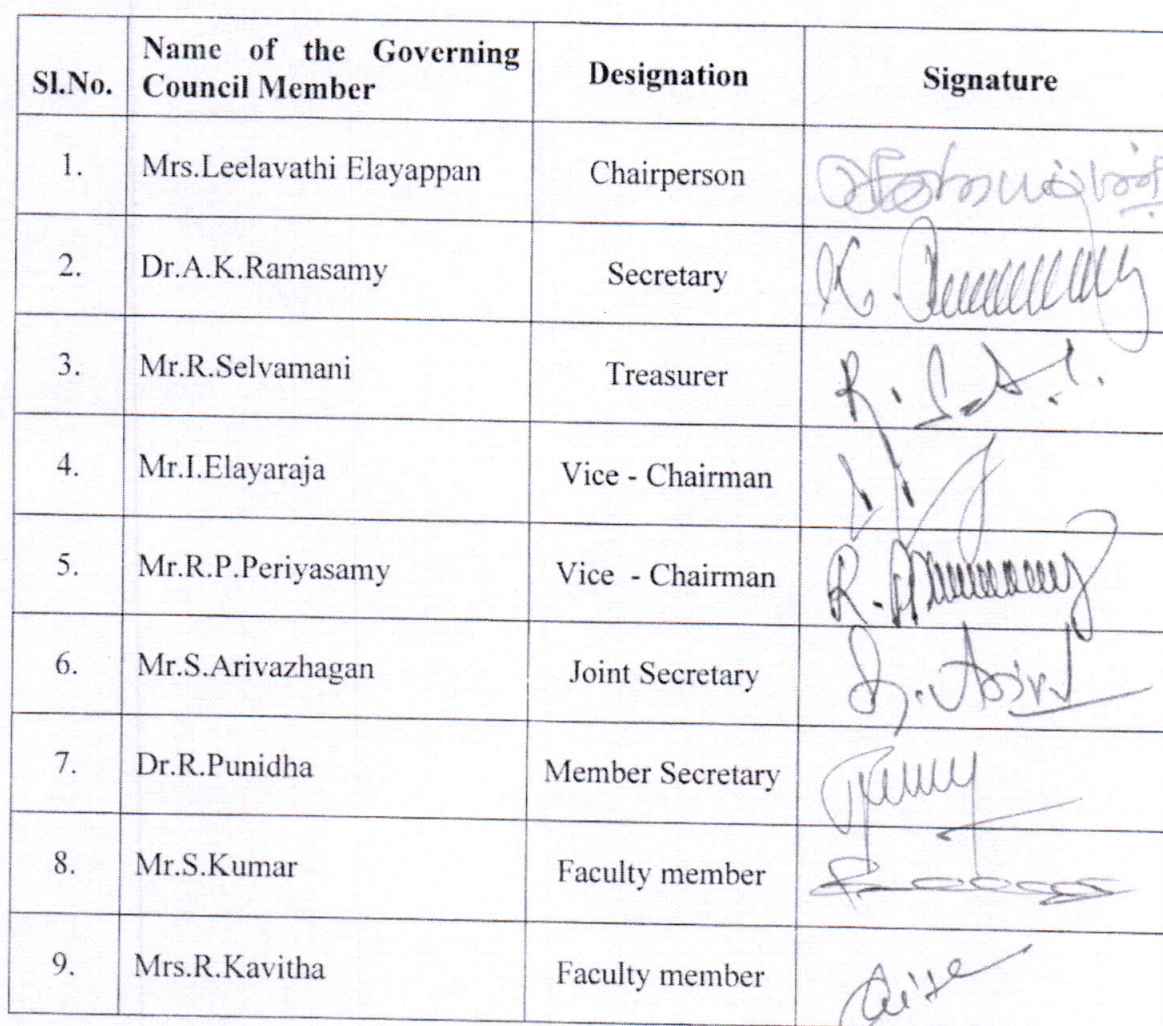 Sl.No. Name of the Governing Council Member Designation Signature
1. Mrs.Leelavathi Elayappan Chairperson
2. Dr.A.K.Ramasamy Secretary
3. Mr.R.Selvamani Treasurer
4. Mr.I.Elayaraja Vice - Chairman
5. Mr.R.P.Periyasamy Vice - Chairman
6. Mr.S.Arivazhagan Joint Secretary
7. Dr.R.Punidha Member Secretary
8. Mr.S.Kumar Faculty member
9. Mrs.R.Kavitha Faculty member